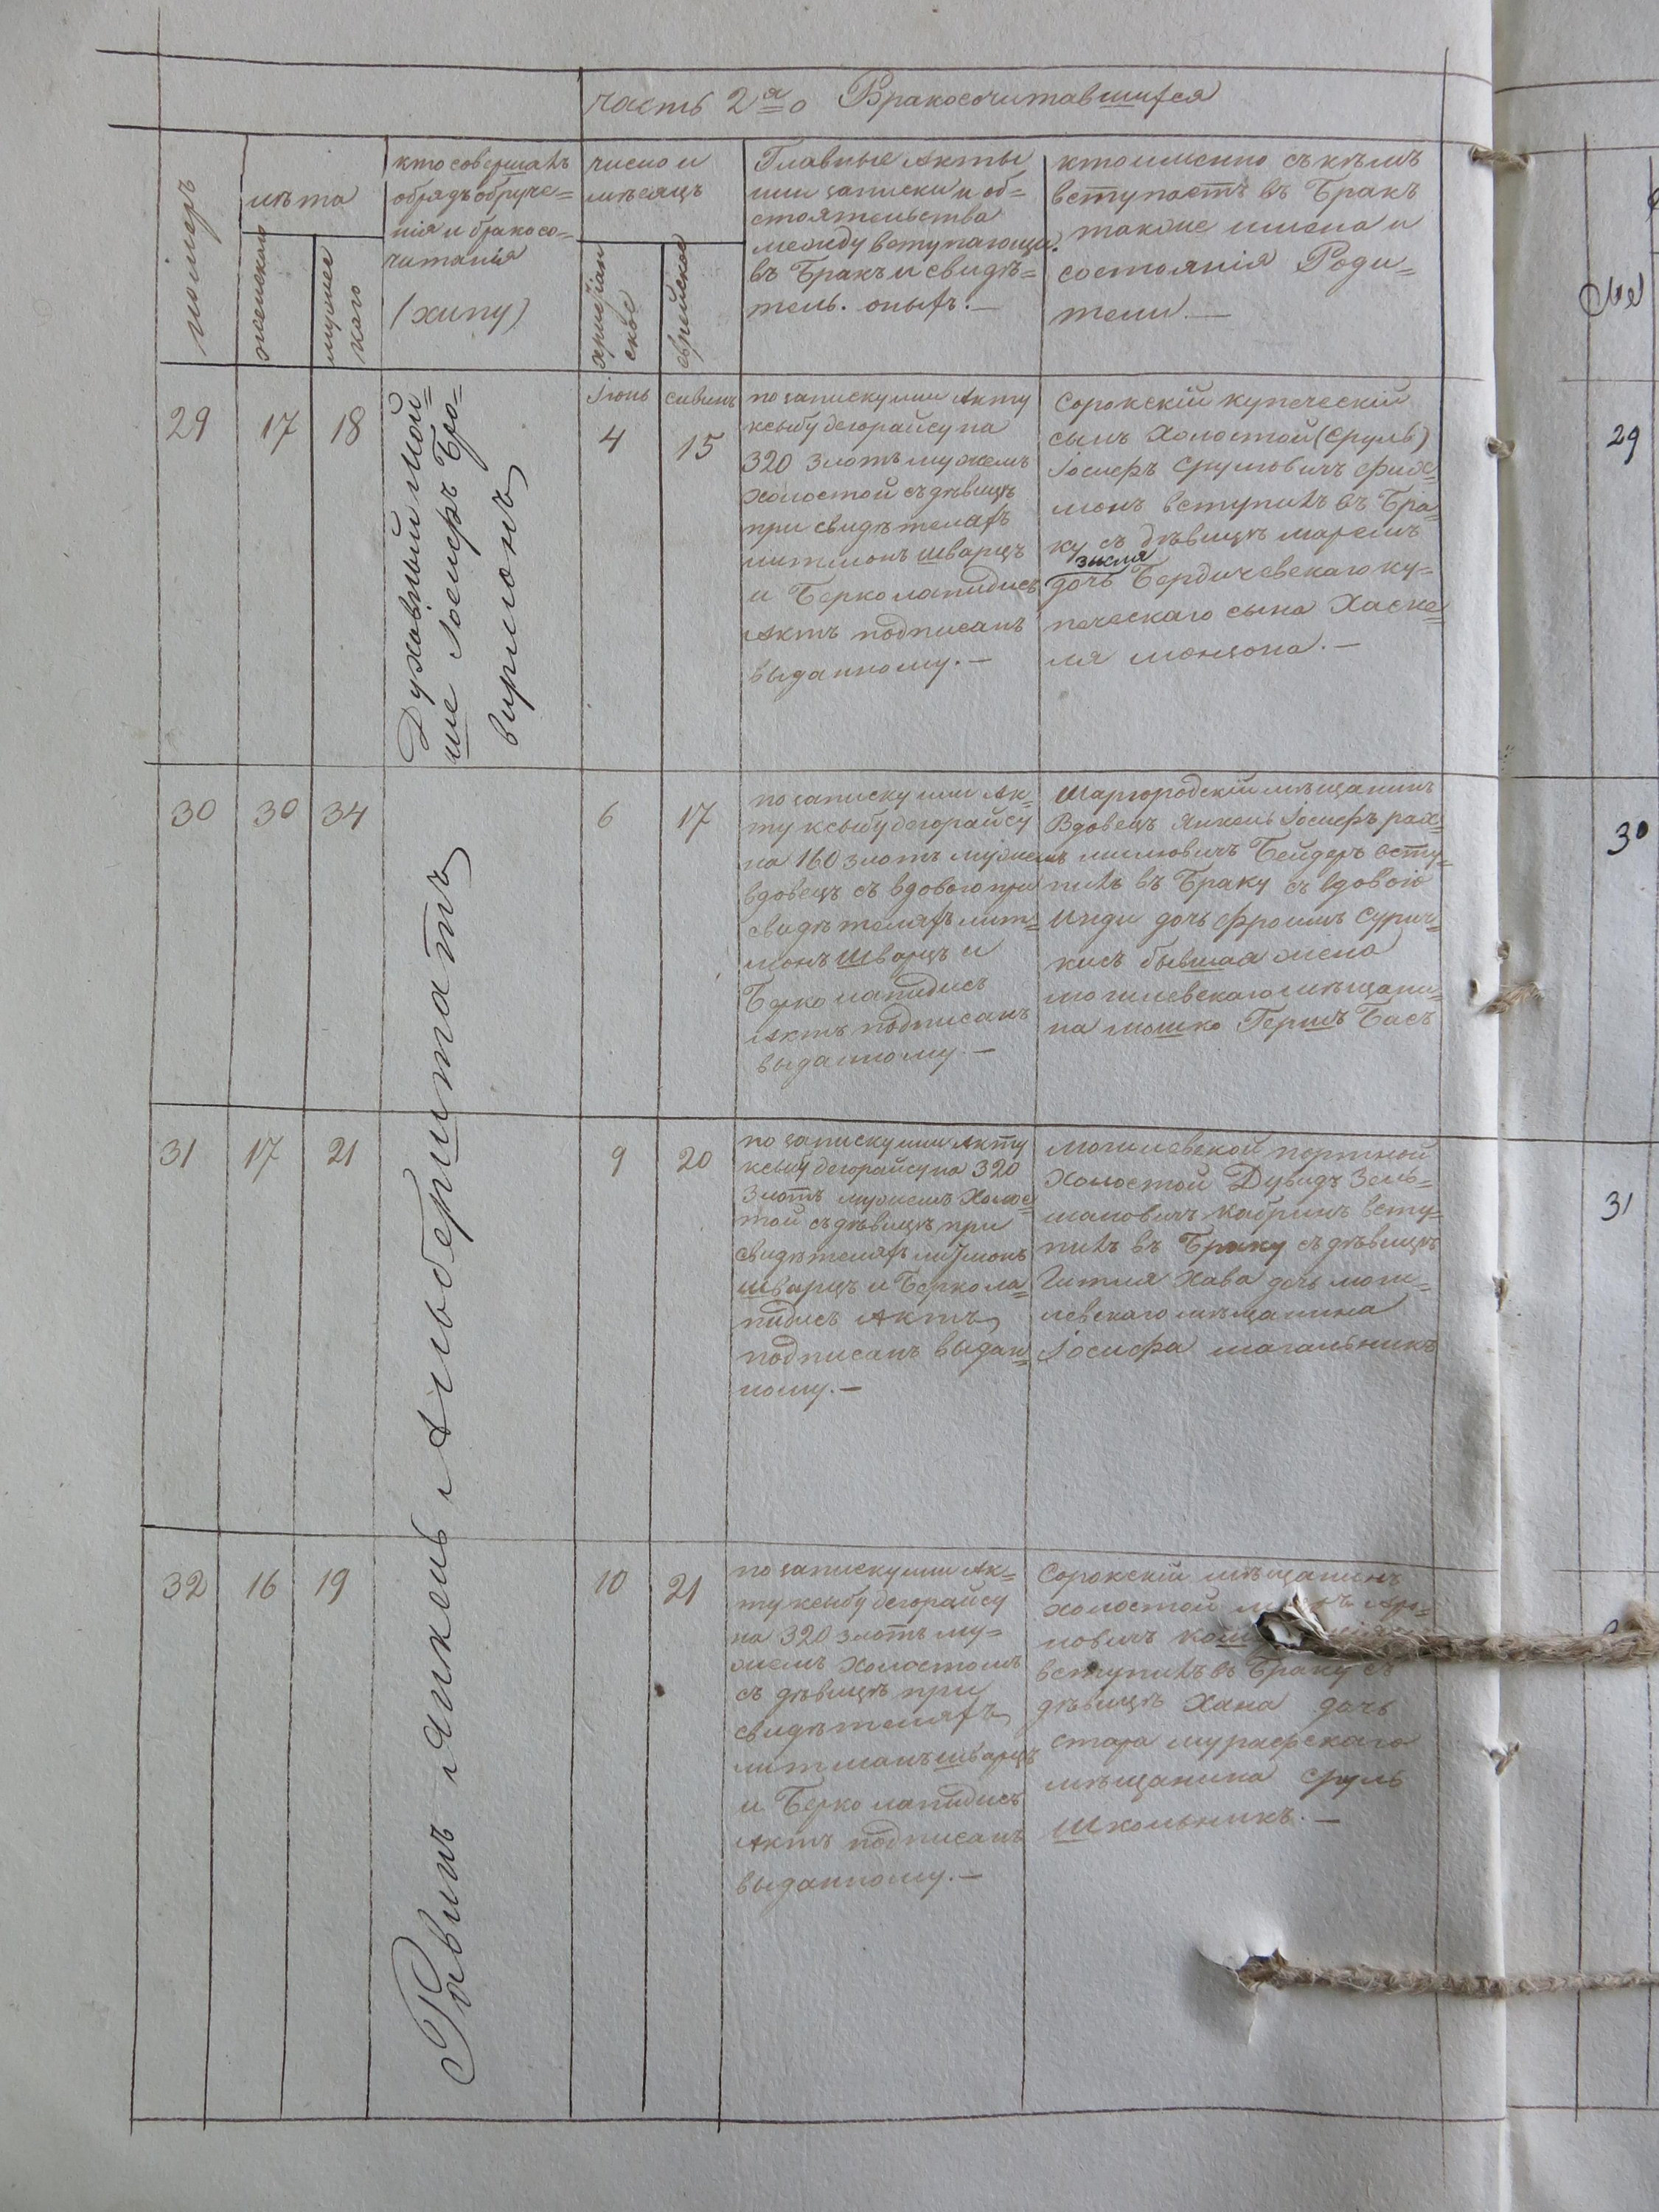 часть 2я о Бракосочитавшихся
номеръ
лѣта
женскаго
мущинс
каго
кто совершалъ
обрядъ обруче=
нія и бракосо=
читанія
(хипу)
число и
мѣсяцъ
христіян
ское
еврейское
Главные Акты
или записки и об=
стоятельства
между вступающи.
въ Бракъ и свидѣ=
тель. оныхъ.—
кто именно съ кѣмъ
вступаетъ въ Бракъ
также имена и
состоянія Роди=
тели.—
29
17
18
Духовный Мой=
ше Іосифъ Бро=
вирмонъ
Іюнь
4
сивинъ
15
по записку или Акту
ксыбу дегорайсу на
320 злотъ мужемъ
холостой съ дѣвицѣ
при свидѣтеляхъ
литмонъ шварцъ
и Берко лапидисъ
Актъ подписанъ
выданному.—
Сорокскій купеческій
сынъ Холостой (Сруль)
Іосифъ Срулович
монъ вступилъ въ Бра
ку съ дѣвицѣ маремъ
зысля
дочь Бердичевскаго ку=
печескаго сына Хаске=
ля
30
30
34
6
17
по записку или Ак=
ту ксыбу дегорайсу
на 160 злотъ мужемъ
вдовецъ съ вдовою при
свидѣтеляхъ лит=
монъ Шварцъ и
Берко лапидисъ
Актъ подписанъ
выданному.—
Шаргородскій мѣщанинъ
Вдовецъ Янкель Іосифъ рах=
миловичъ Бейдеръ всту=
пилъ въ Браку съ вдовою
Инди дочь Фроимъ
бывшая жена
могилевскаго мѣщани=
на мошко Гершъ Басъ
31
17
21
9
20
по записку или Акту
ксыбу дегорайсу на 320
Злотъ мужемъ Холос=
той съ дѣвицѣ при
свидѣтеляхъ литмонъ
шварцъ и Берко ла=
пидисъ Актъ
подписанъ выдан=
ному.—
могилевской портной
Холостой Дувидъ Зель=
мановичъ Кабринъ всту=
пилъ въ Браку съ дѣвицѣ
Гитля Хава дочь моги=
левскаго мѣщанина
Іосифа магальникъ
32
16
19
Рабинъ Янкель Альберштатъ
10
21
по записку или Ак=
ту ксыбу дегорайсу
на 320 злотъ му=
жемъ Холостомъ
съ дѣвицѣ при
свидѣтеляхъ
литманъ шварцъ
и Берко лапидисъ
Актъ подписанъ
выданному.—
Сорокскій мѣщанинъ
холостой
новичъ
вступилъ въ Браку съ
дѣвицѣ Хана дочь
стара мурафскаго
мѣщанина Сруль
Школьникъ.—
29
30
31